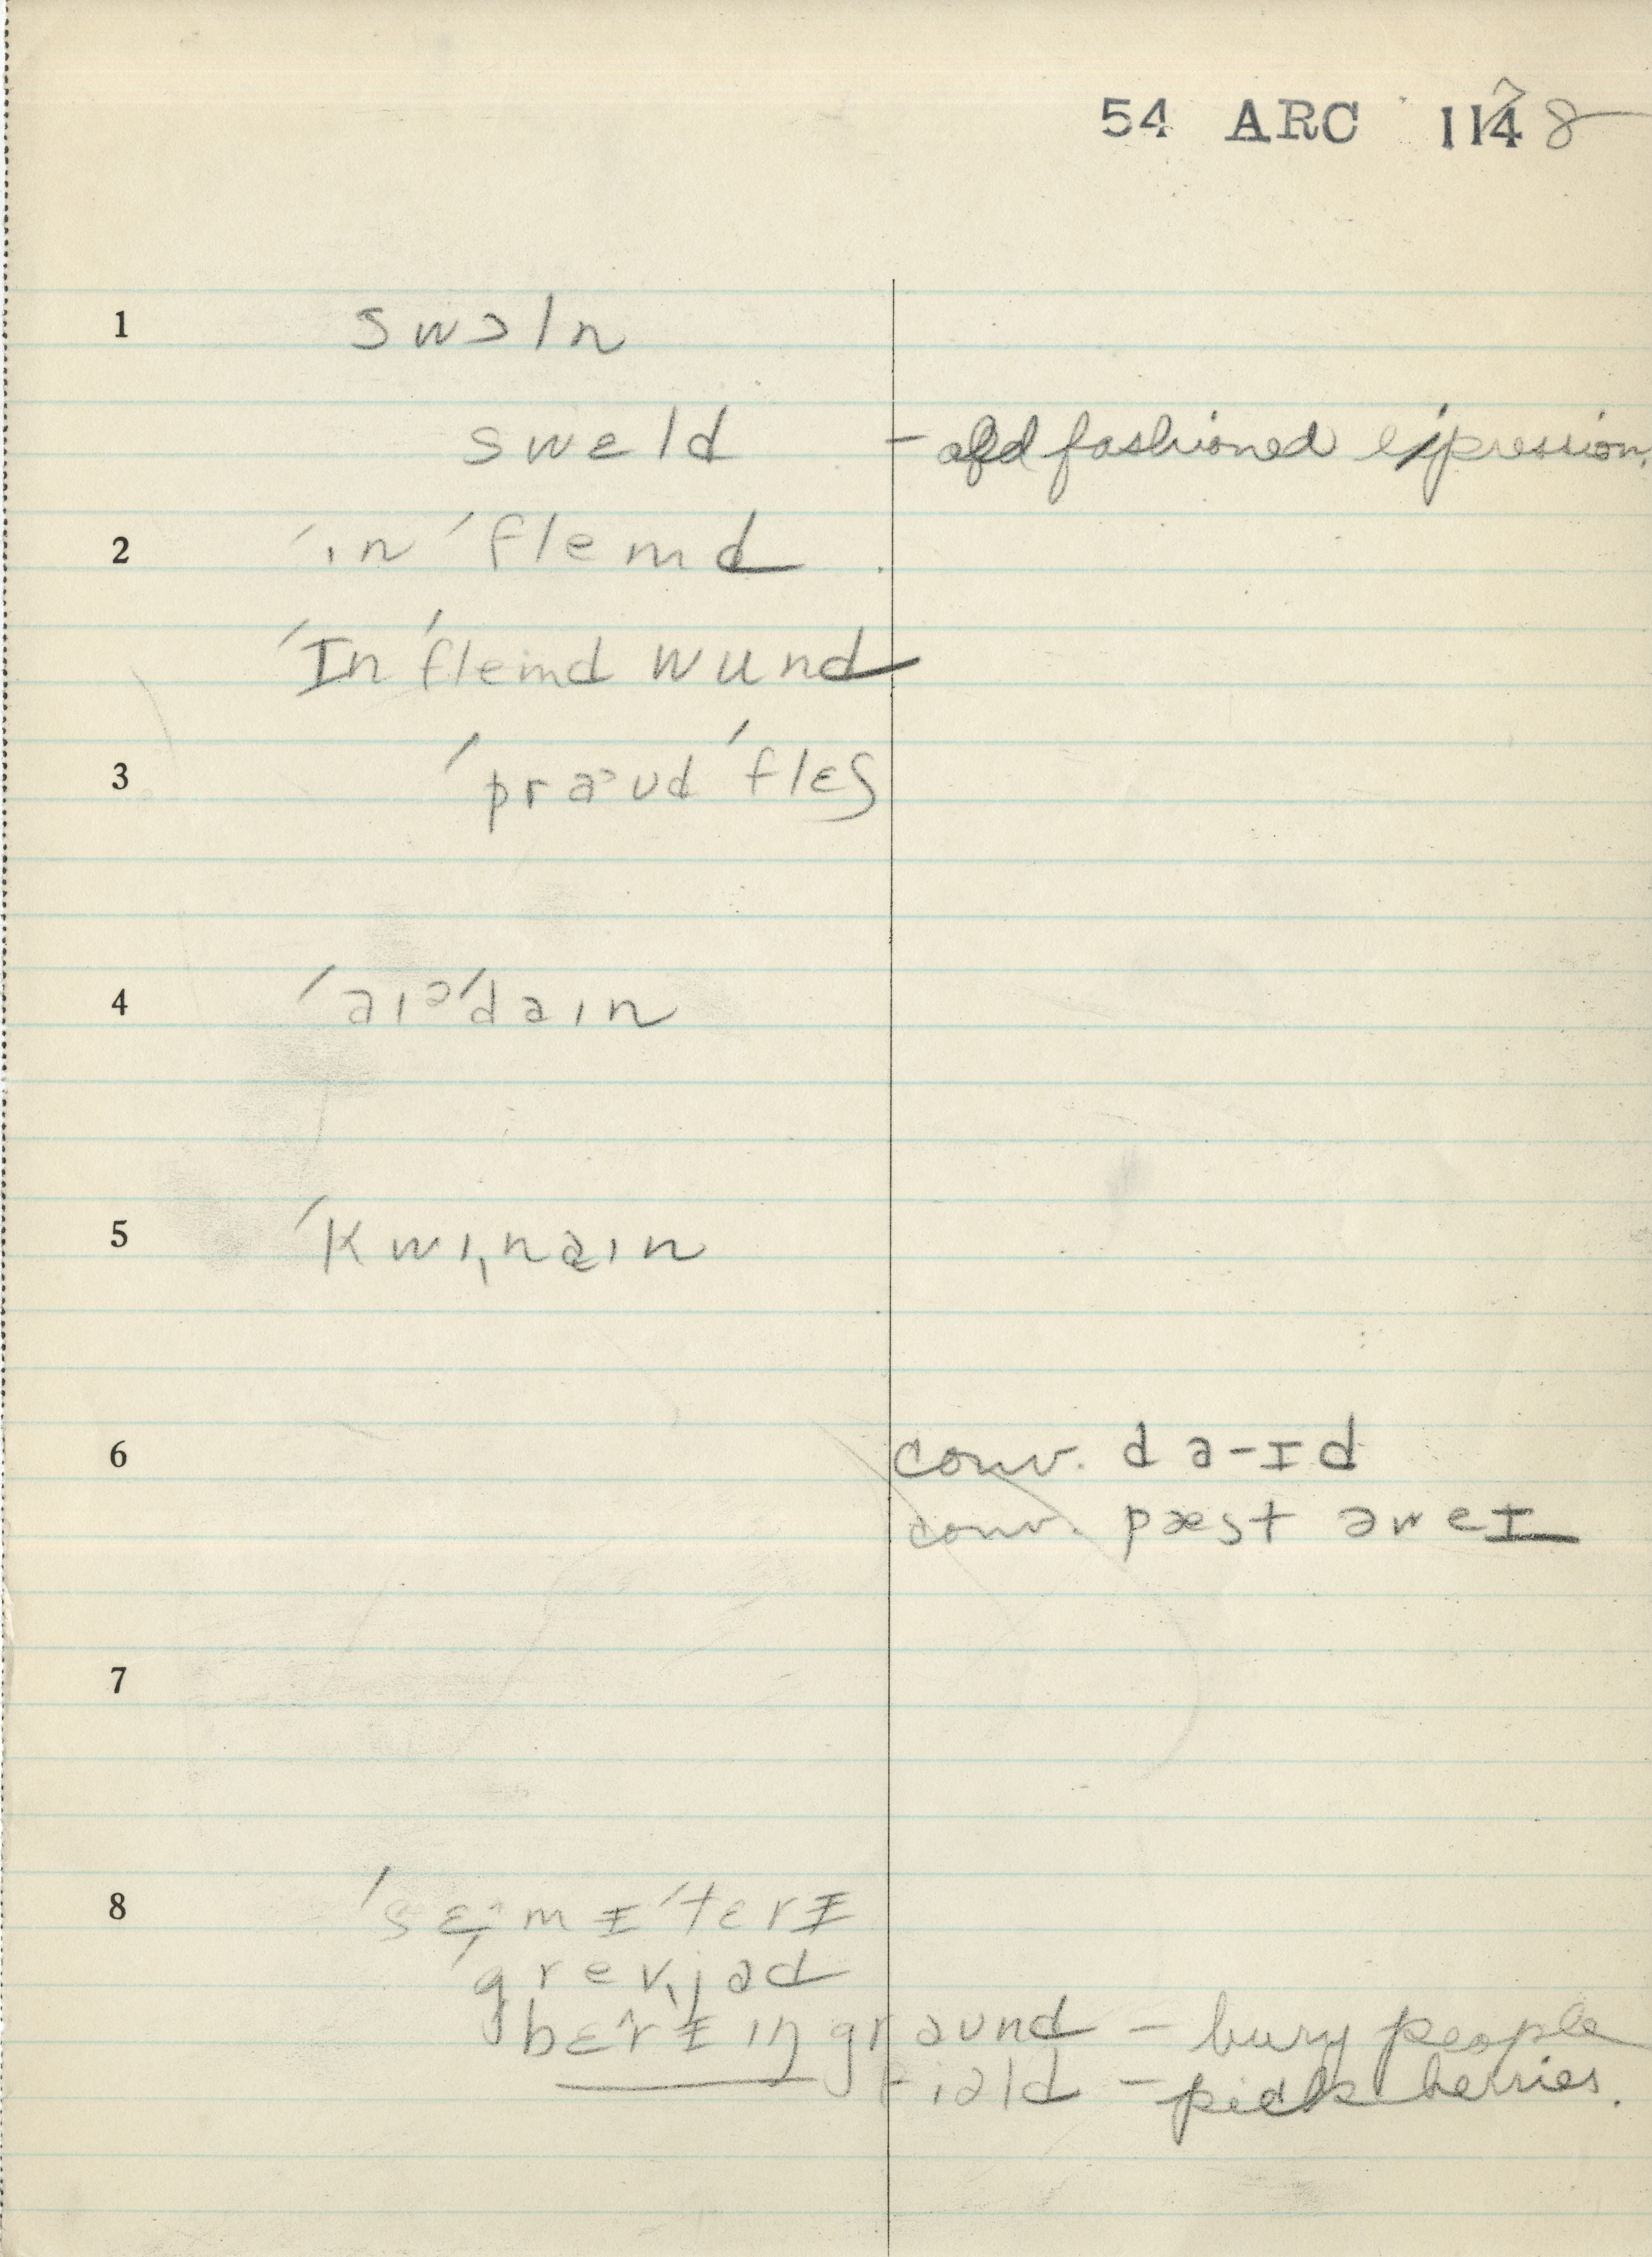 54 ARC 1148
1 swɔln
swɛld – old fashioned expression.
2 ˈɪnˈflemd
ˈInˈfleimd wund
3 ˈpraᵊudˈflɛʃ
4 ˈaɪᵊˈdaɪn
5 ˈkwɪˌnaɪn
6 conv. da-ɪd
conv. pæst əweɪ
7
8 ˈsɛmɪˈtɛrɪ
ˈgrevˌjad
bɛrɪɪŋ graund – bury people
fiəld – pick berries.